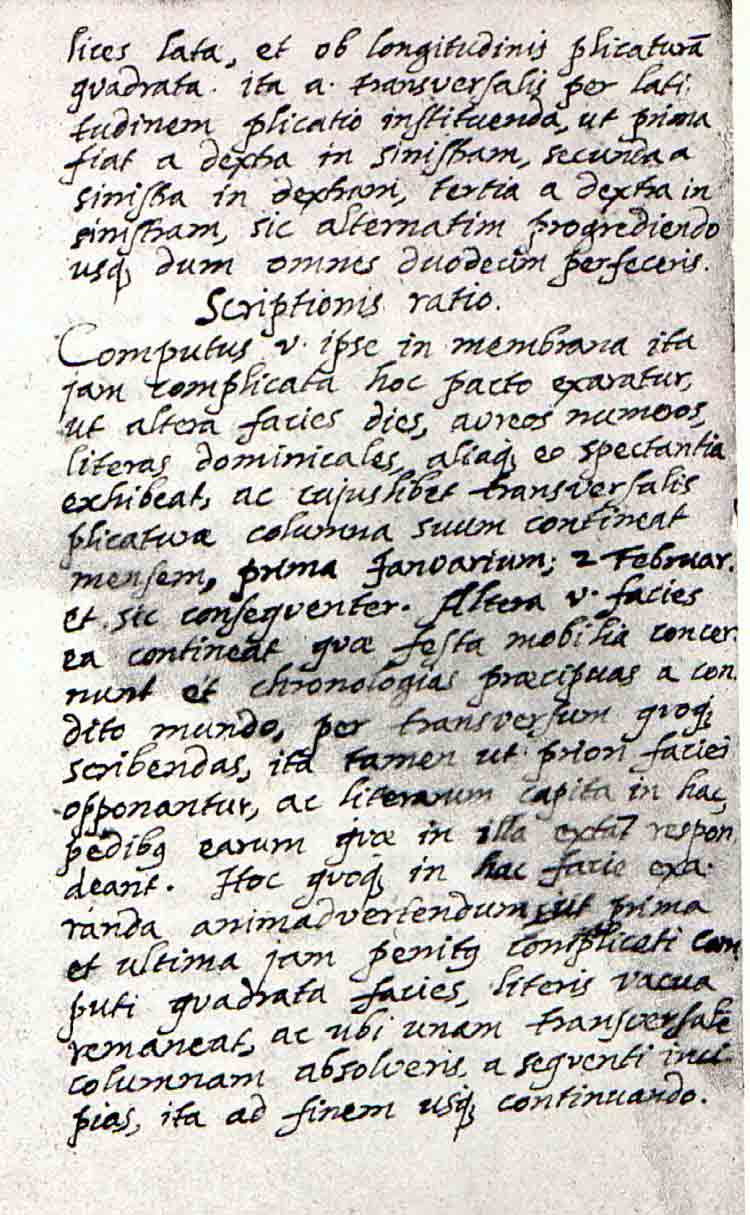 lices lata, et ob longitudinis plicaturā
quadrata. ita a. transversalis per lati:
tudinem plicatio instituenda, ut prima
fiat a dextra in sinistram, secunda a
sinistra in dextram, tertia a dextra in
sinistram, sic alternatim progrediendo
usq; dum omnes duodecim perfeceris.
Scriptionis ratio.
Computus v. ipse in membrana ita
jam complicata hoc pacto exaratur,
ut altera facies dies, aureos numeros,
literas dominicales, aliaq; eo spectantia
exhibeat, ac cujuslibet transversalis
plicaturæ columna suum contineat
mensem, prima Januarium; 2 Februar.
et sic consequenter. Altera v. facies
ea contineat quæ festa mobilia concer
nunt et chronologias præcipuas a con
dito mundo, per transversum quoq;
scribendas, ita tamen ut priori faciei
opponantur, ac literarum capita in hac,
pedibq earum quæ in illa extāt respon
deant. Hoc quoq; in hac facie exa.
randa animadvertendum, ut prima
et ultima jam penitq complicati com
puti quadrata facies, literis vacua
remaneat, ac ubi unam transversalē
columnam absolveris, a sequenti inci
pias, ita ad finem usq; continuando.